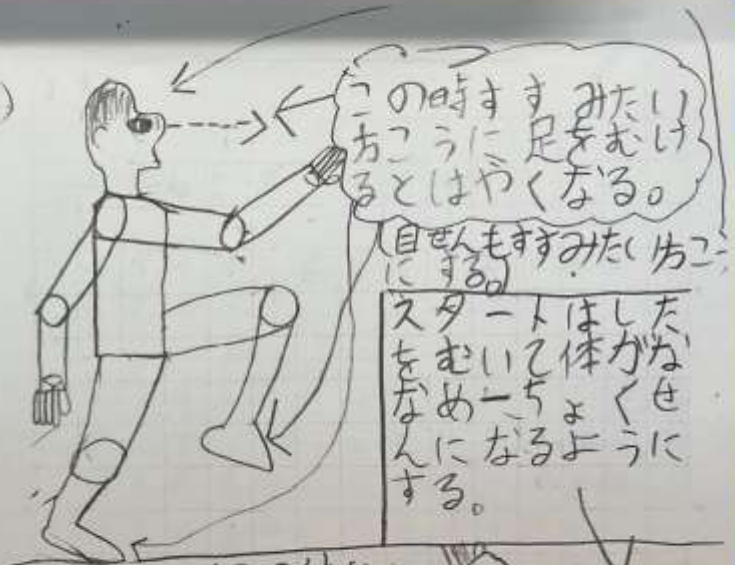 この時すすみたい
方こうに足をむけ
るとはやくなる。
(自せんもすすみたい方こう
にする。)
スタートはした
をむいて体がな
なめ一ちょくせ
んになるように
する。